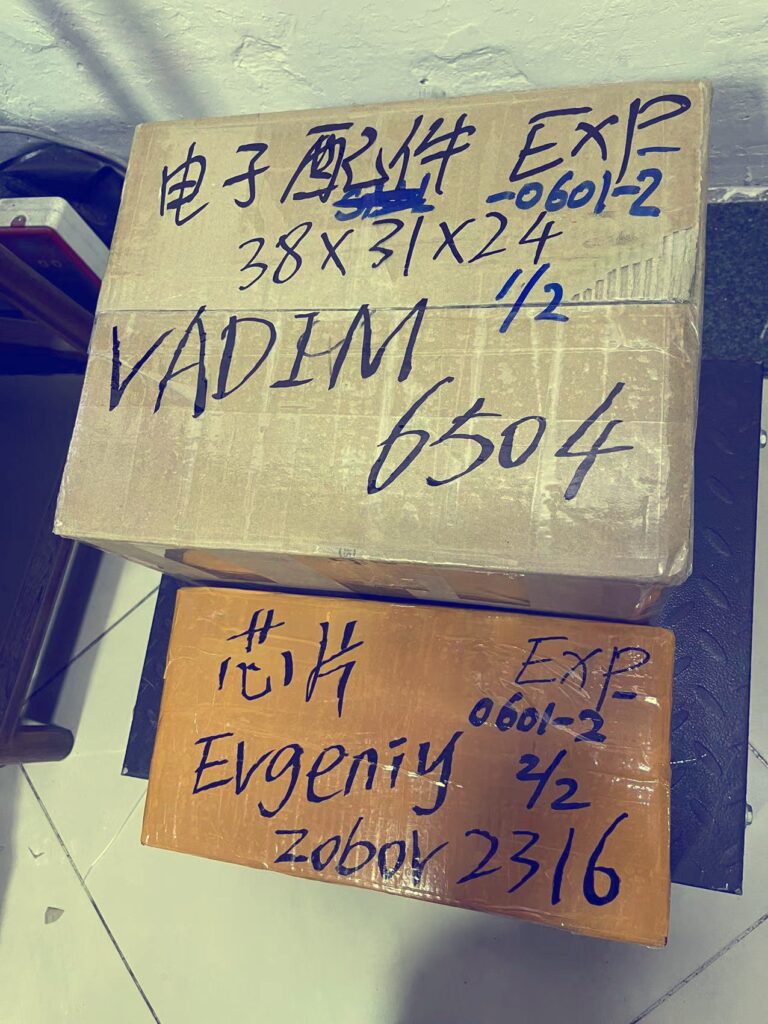 电子配件 EXP
-0601-2
38X31X24
1/2
VADIM
6504
芯片 EXP
0601-2
Evgeniy 2/2
zobov 2316